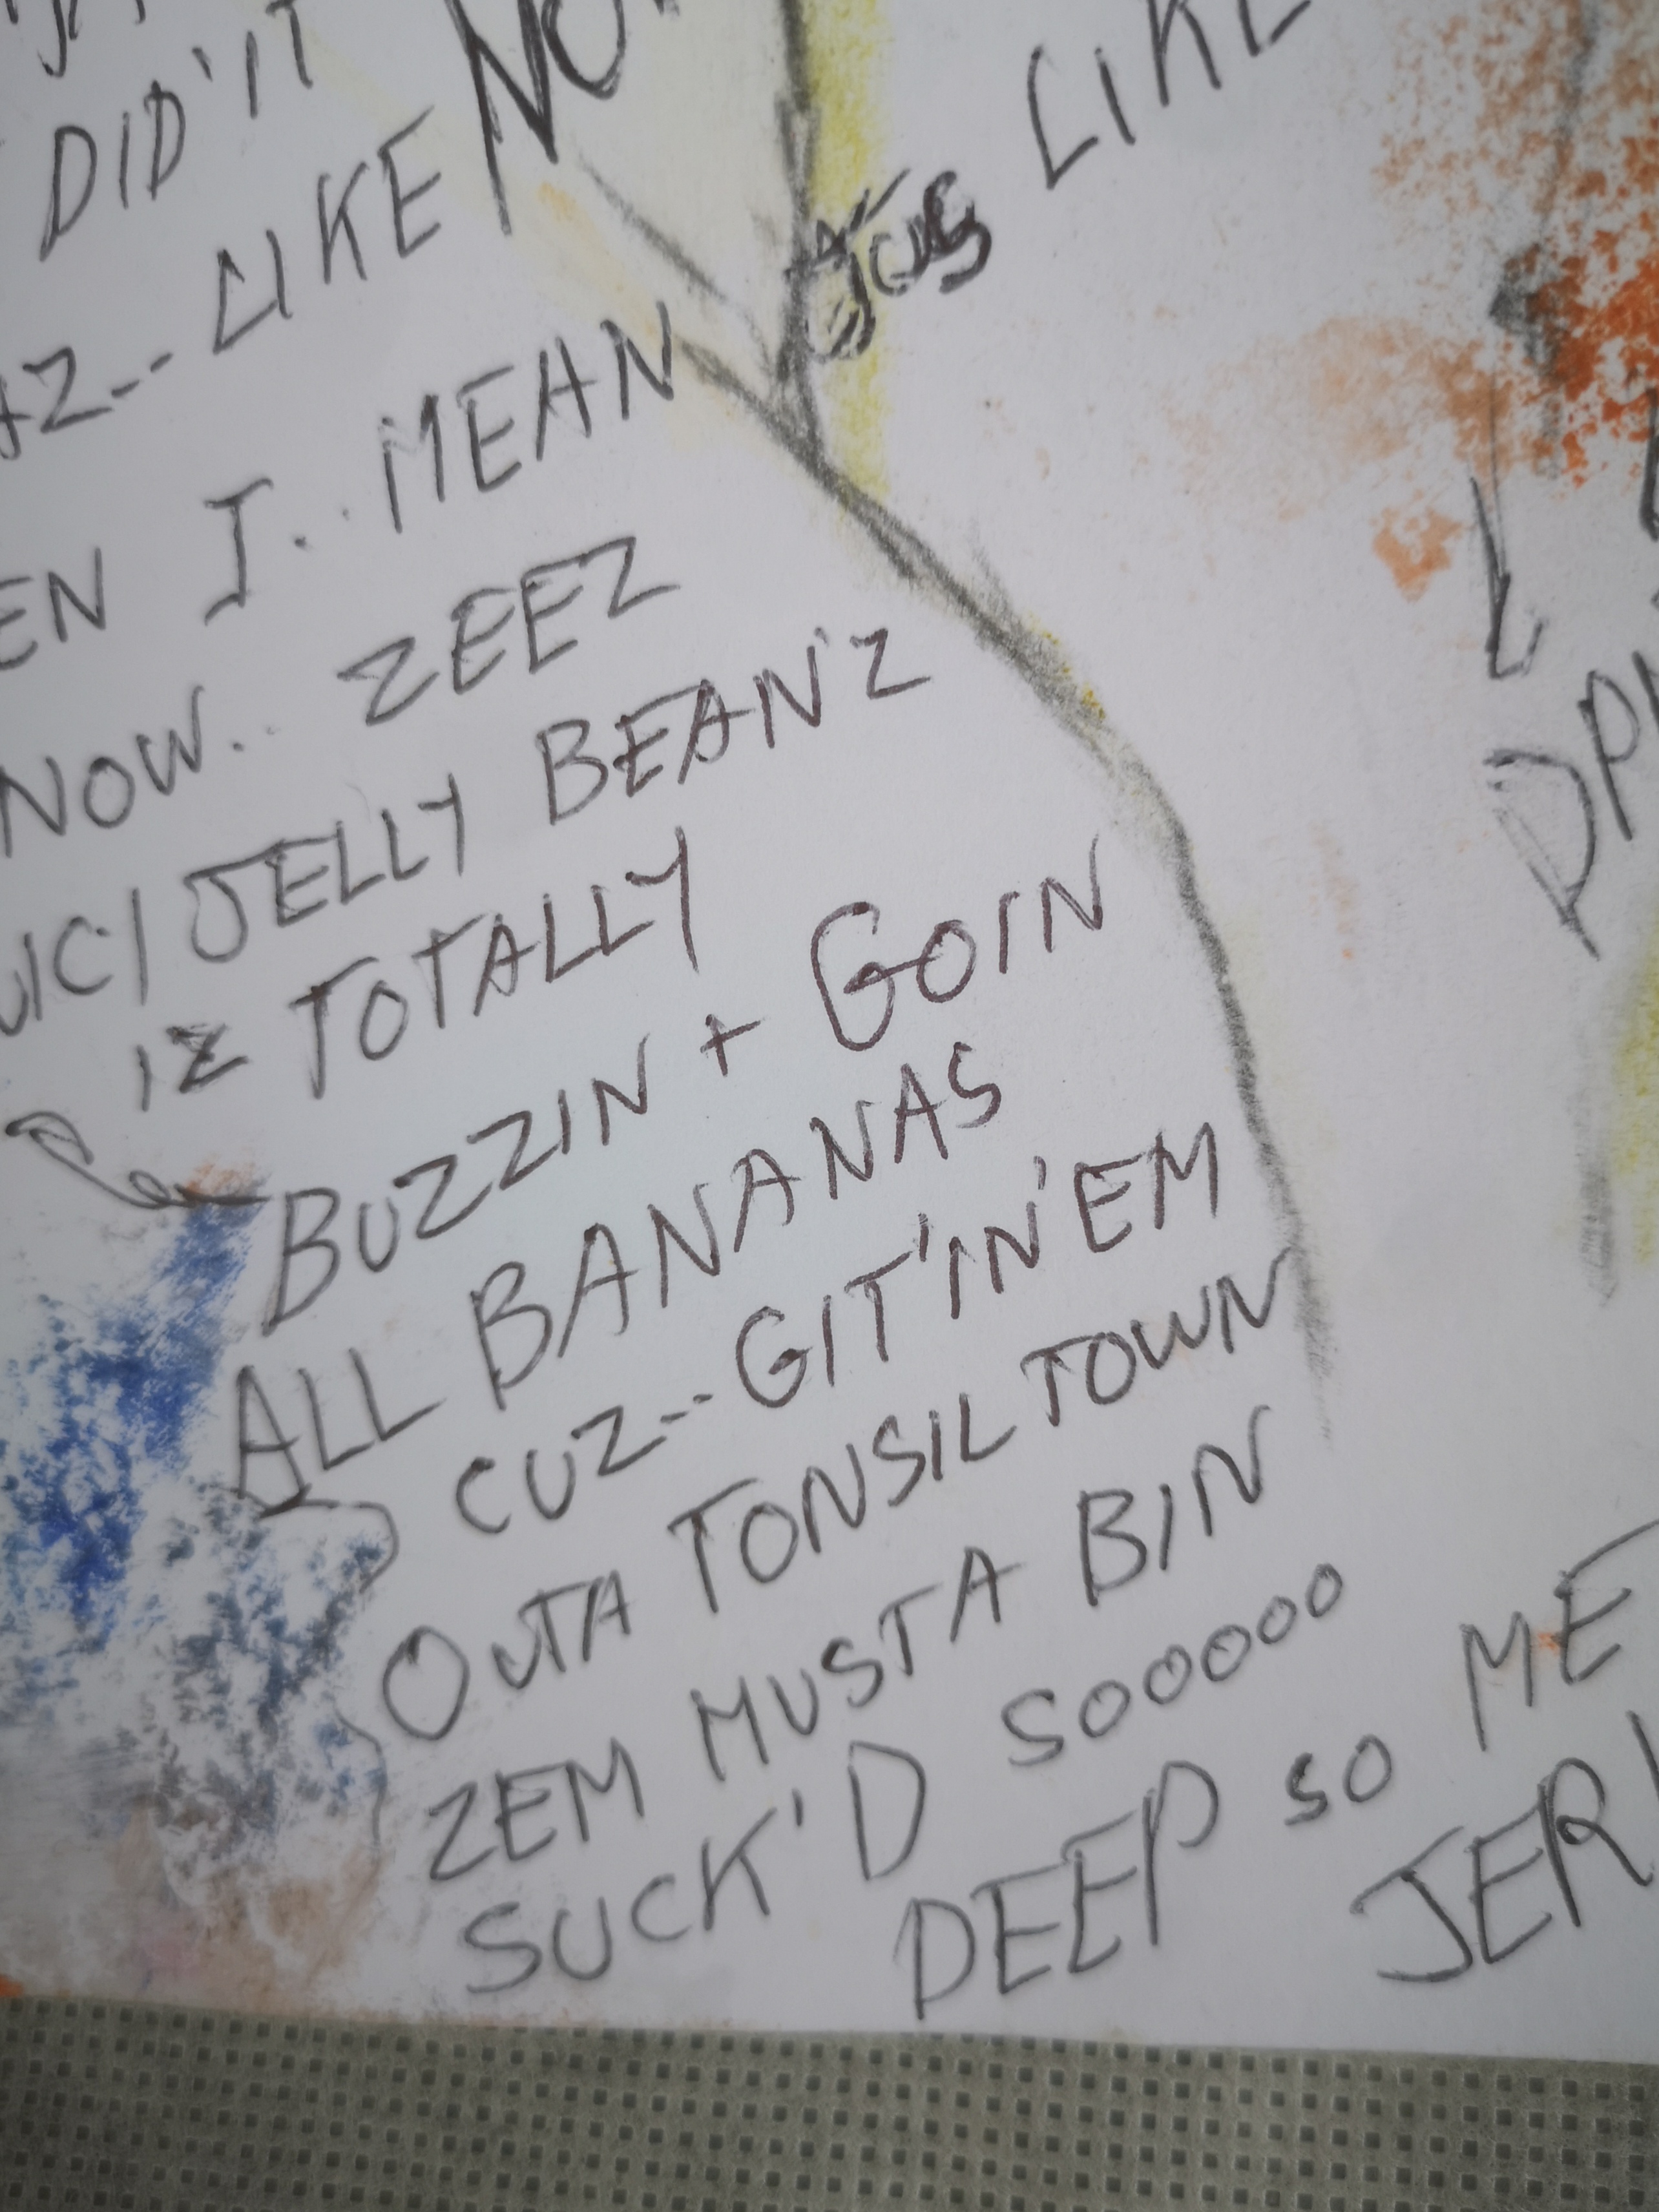 DID'IT
LIKE NO
JUS LIKE
I.. MEAN
NOW.. ZEEZ
JELLY BEAN'Z
IZ TOTALLY
BUZZIN + GOIN
ALL BANANAS
CUZ-- GIT'IN'EM
OUTA TONSIL TOWN
ZEM MUSTA BIN
SUCK'D SOOOOO
DEEP SO ME